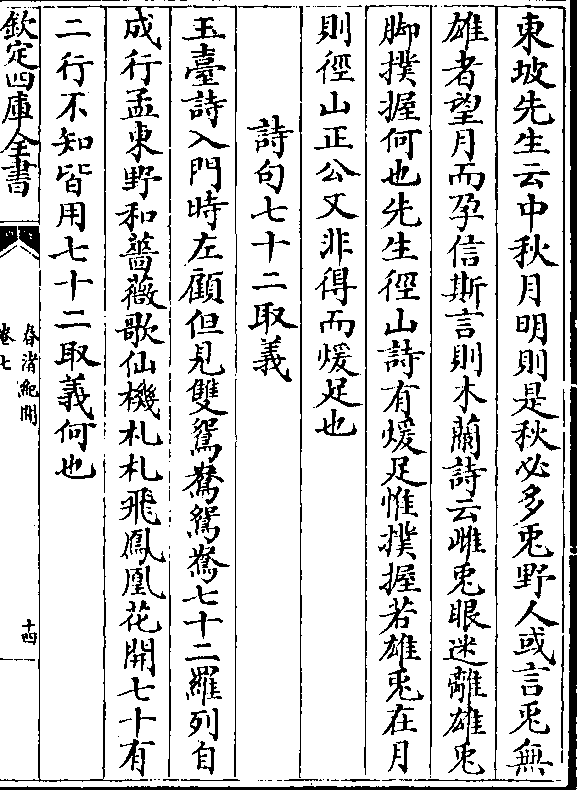 東坡先生云中秋月明則是秋必多兎野人或言兎無
雄者望月而孕信斯言則木蘭詩云雌兎眼迷離雄兎
脚撲握何也先生徑山詩有煖足惟撲握若雄兎在月
則徑山正公又非得而煖足也
詩句七十二取義
玉臺詩入門時左顧但見雙鴛鴦鴛鴦七十二羅列自
成行孟東野和薔薇歌仙機札札飛鳳凰花開七十有
二行不知皆用七十二取義何也
欽定四庫全書
春渚紀聞
卷七
十四